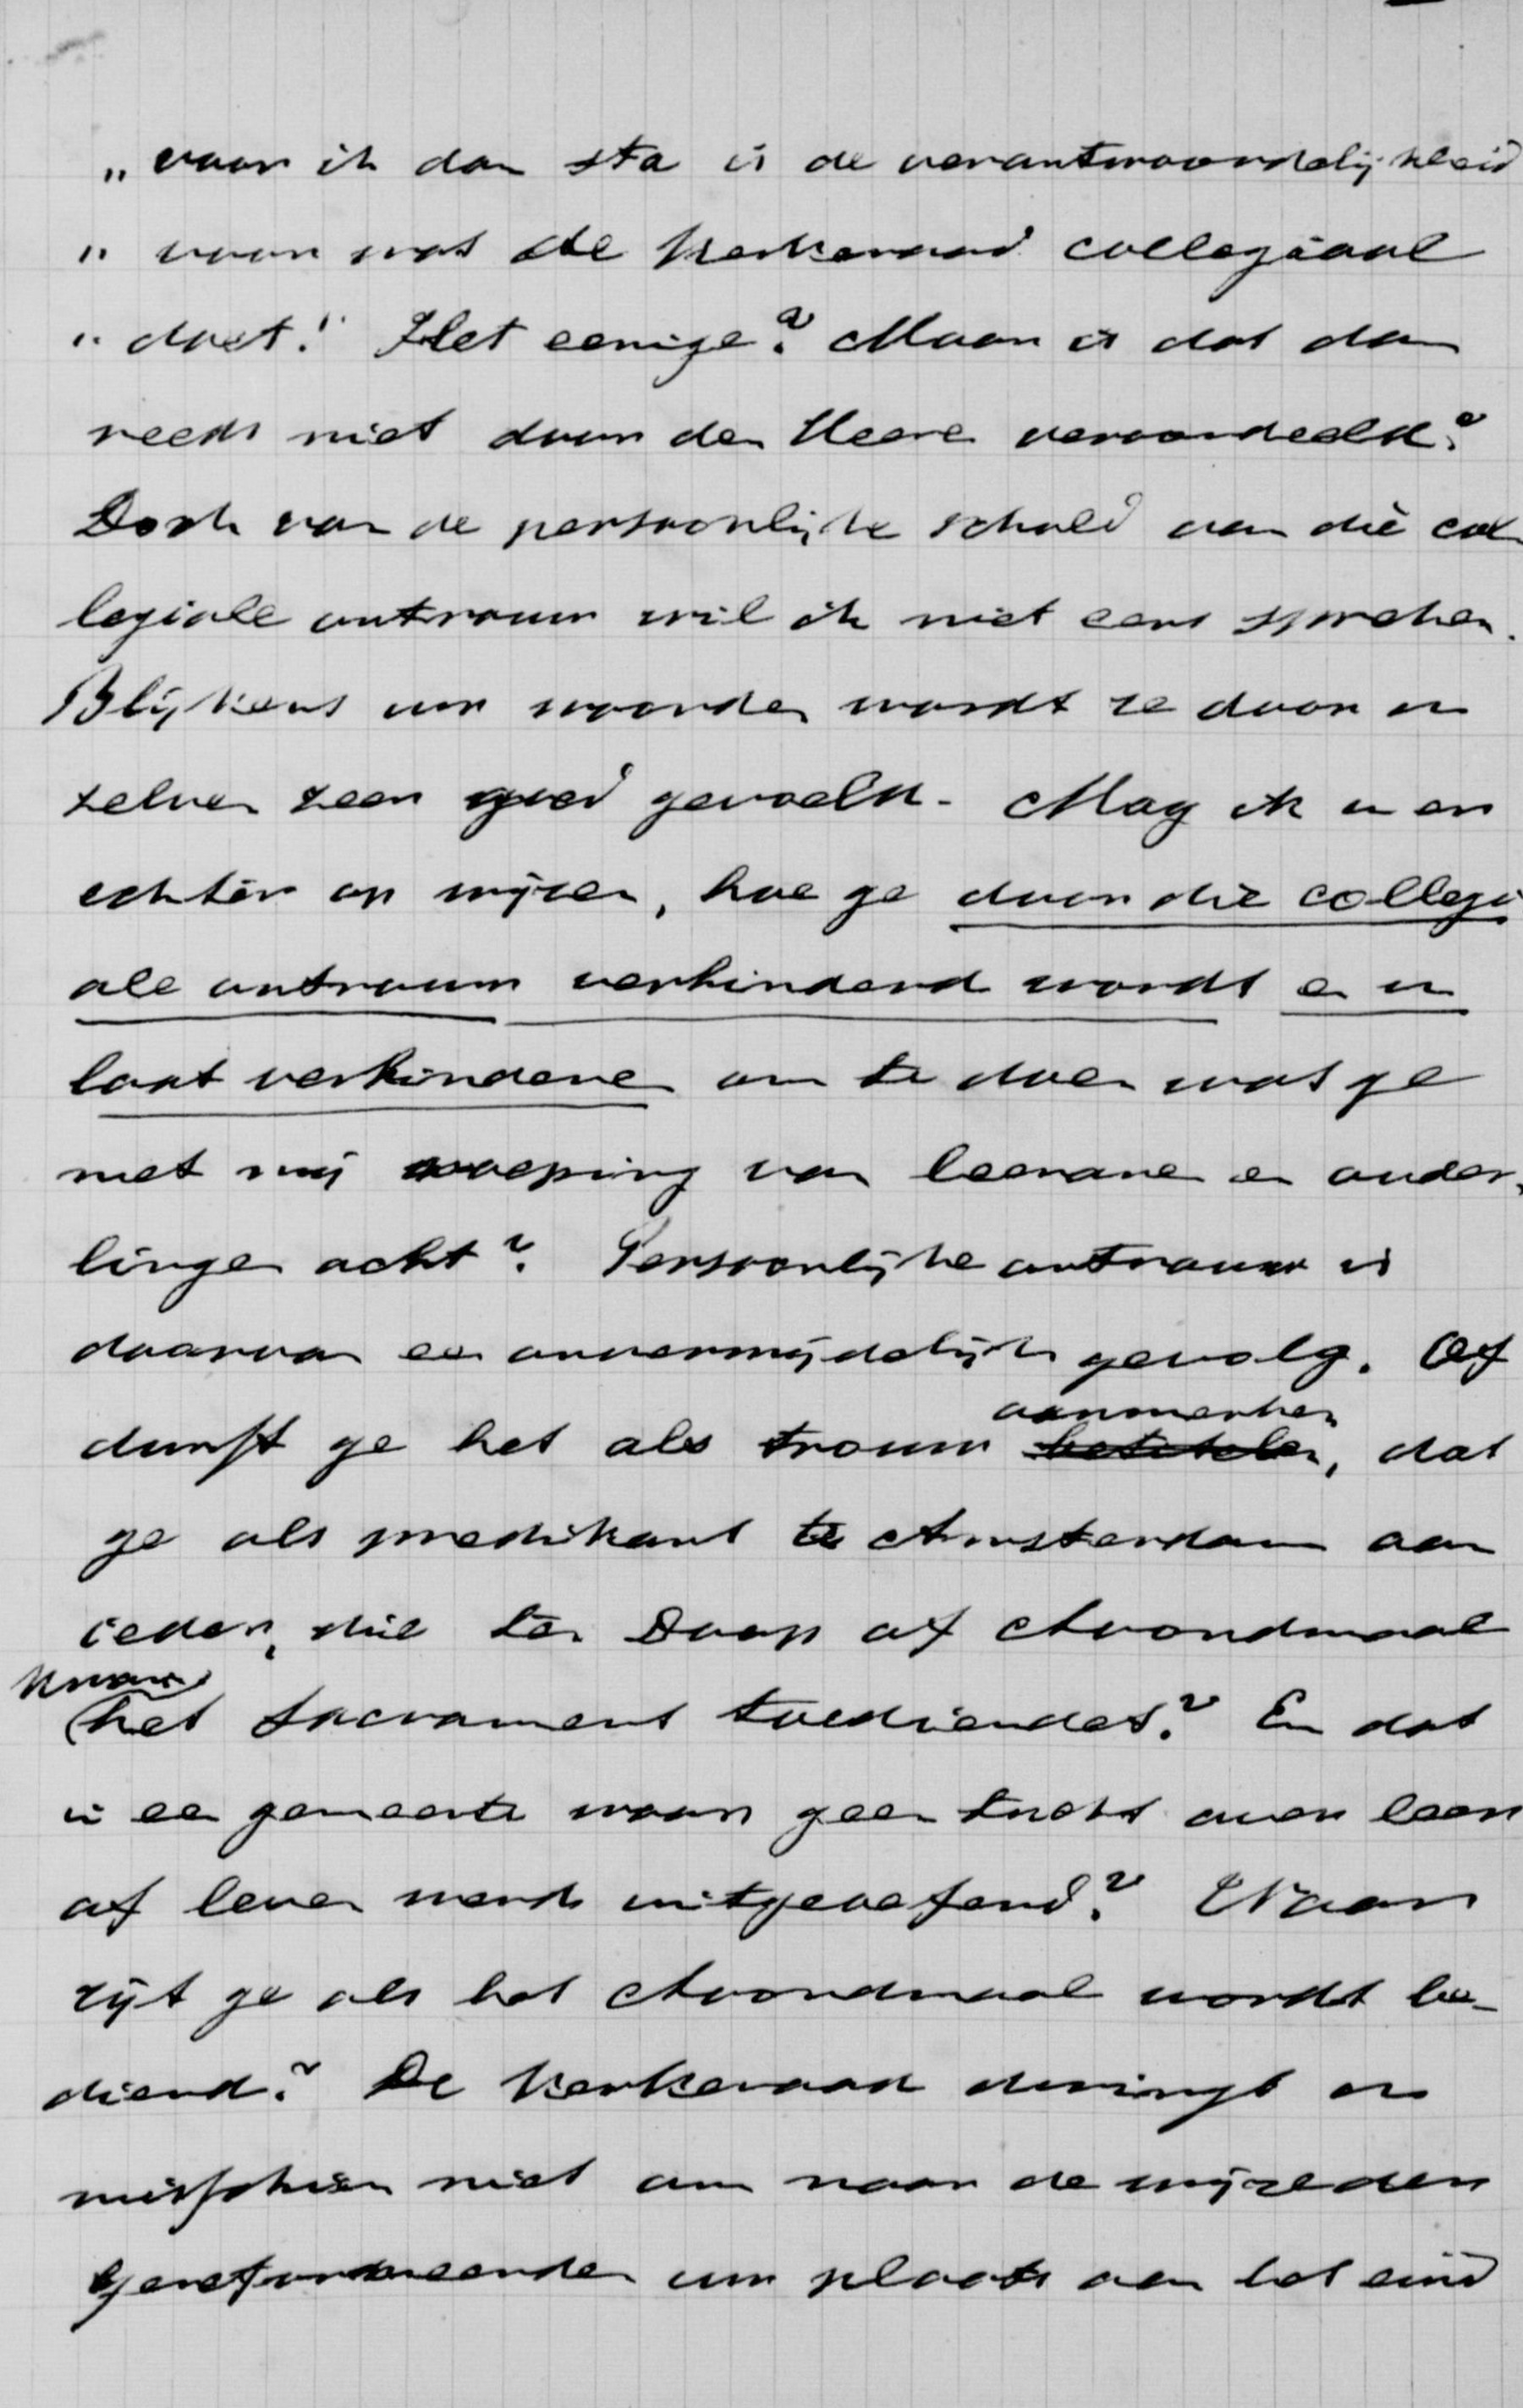 „ waar ik dan sta is de verantwoordelijkheid
„ voor wat de kerkeraad collegiaal
„ doet." Het eenige? Maar is dat dan
reeds niet door den Heere veroordeeld?
Doch van de persoonlijke schuld aan die col
legiale ontrouw wil ik niet eens spreken.
Blijkens uw woorden wordt ze door u
zelven zeer goed gevoeld. Mag ik u er
echter op wijzen, hoe ge door die collegi
ale ontrouw verhinderd wordt en u
laat verhinderen om te doen wat ge
met mij roeping van leeraren en ouder-
lingen acht? Persoonlijke ontrouw is
daarvan een onvermijdelijk gevolg. Of
durft ge het als trouw ~~betitelen~~ aanmerken, dat
ge als predikant te Amsterdam aan
ieder, die ten Doop of Avondmaal
kwam het sacrament toediendet? En dat
in een gemeente waar geen tucht over leer
of leven werd uitgeoefend? Waar
zijt ge als het Avondmaal wordt be-
diend? De Kerkeraad dwingt u
misschien niet om naar de wijze der
Gereformeerden uw plaats aan het eind